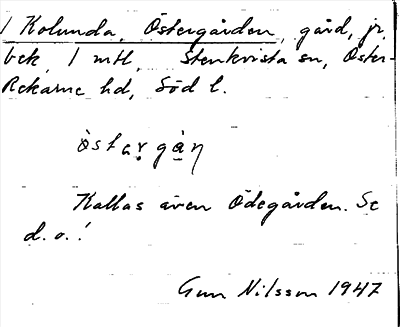 1 Kolunda, Östergården, gård, jr.
bek 1 mtl, Stenkvista sn, Öster-
Rekarne hd, Söd l.
Kallas även Ödegården. Se
d. o.!
Gun Nilsson 1947